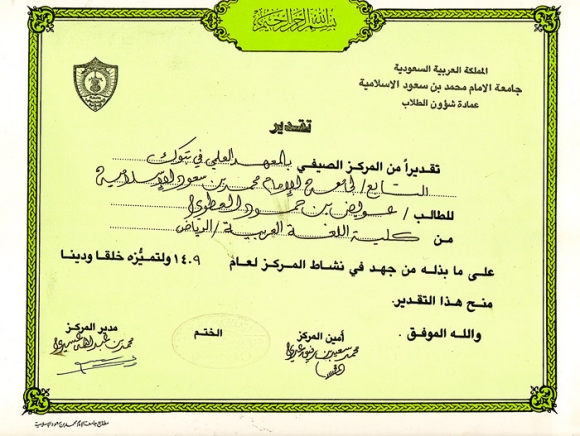 بسم الله الرحمن الرحيم
المملكة العربية السعودية
جامعة الامام محمد بن سعود الاسلامية
عمادة شؤون الطلاب
تقدير
تقديراً من المركز الصيفي بالمعهد العلمي في تبوك
التابع / لجامعة الإمام محمد بن سعود الإسلامية
للطالب / عويض بن حمود العطوي
من كلية اللغة العربية / الرياض
على ما بذله من جهد في نشاط المركز لعام ١٤٠٩ ولتميُّزه خلقا ودينا
منح هذا التقدير.
والله الموفق.
أمين المركز
الختم
مدير المركز
محمد بن عبدالله